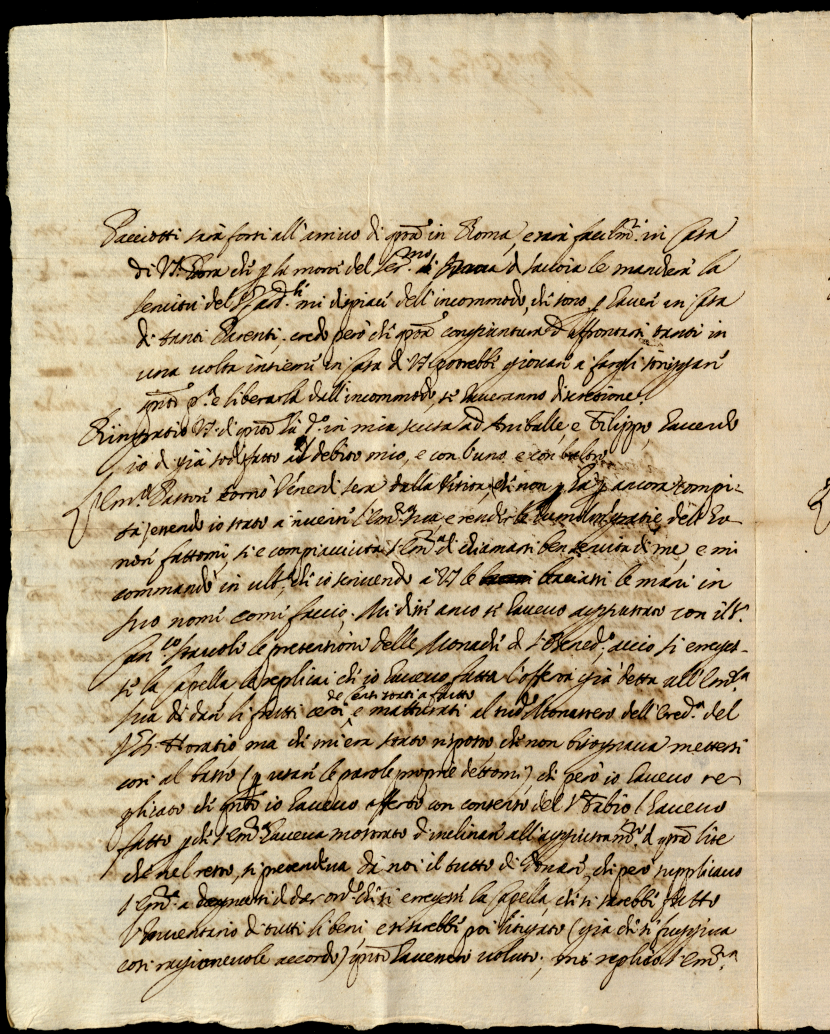 Pacciotti sarà forsi all'arrivo di q.ta in Roma, e sarà facilm.te in Casa
di V.S. hora che p la morte del Ser.mo di d saccoia le manderà la
servitù del S.r Card.le mi dispiace dell'incommodo, che sono p havere in Casa
di tanti Parenti, credo però che q.ta congiuntura d'affrontarsi tanti in
una volta insieme in Casa di V.S. potrebbe giovare a fargli
q.to e liberarla dall'incommodo, se haveranno discrettione
Ringratio V.S. di q.to ha d.o in mia scusa ad Aniballe e Filippo, havendo
io di già sodisfatto al debito mio, e con l'uno e con l'altro
L'Em.o Pastore tornò Venerdì sera dalla Visita, che non p ancora compi-
ta, essendo io stato a riverire l'Em.za Sua, e renderle humiliss.e gratie dell'ho-
nori fattomi, si è compiacciuta S. Em.a di chiamarsi ben servita di me, e mi
commandò in ult.o, che io scrivendo a V.S. le bacciassi le mani in
suo nome come faccio; Mi disse anco se havevo aggiustato con il S.r
Fran.co le pretensioni delle Monache di S. Bened.o, acciò si eregges-
se la Capella, le replicai che io havevo fatta l'offerta già detta all'Em.za
de essi stati a frutto
Sua di dare li frutti certi, e matturati al sud.o Monastero dell'Ered.tà del
S.r Horatio ma che mi era stato risposto, che non bisognava mettersi
così al basso (p usare le parole proprie dettomi) che però io havevo re-
plicato che q.to io havevo offerto con consenso del S.r Fabio l'havevo
fatto p che S. Em.a haveva mostrato d'inclinare all'aggiustam.to di q.ta lite
che nel resto, si pretendeva da noi il tutto di donare, che però supplicavo
S. Em.a a degnarsi di dar ord.e che si eregesse la Capella, che si sarebbe fatto
l'Inventario di tutti li beni e si sarebbe poi litigato (già che si fuggiva
così ragionevole accordo) q.to havessero voluto; mi replicò S. Em.za